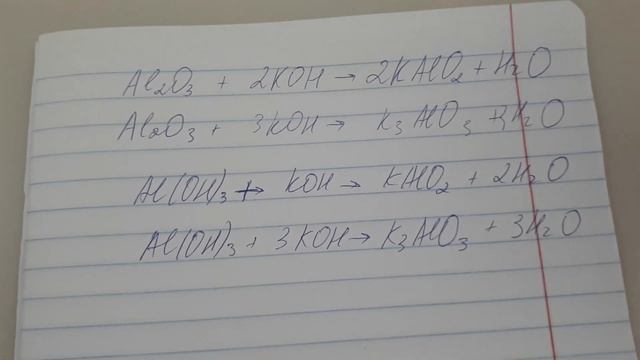 Al₂O₃ + 2KOH → 2KAlO₂ + H₂O
Al₂O₃ + 3KOH → K₃AlO₃ + 3H₂O
Al(OH)₃ + KOH → KAlO₂ + 2H₂O
Al(OH)₃ + 3KOH → K₃AlO₃ + 3H₂O